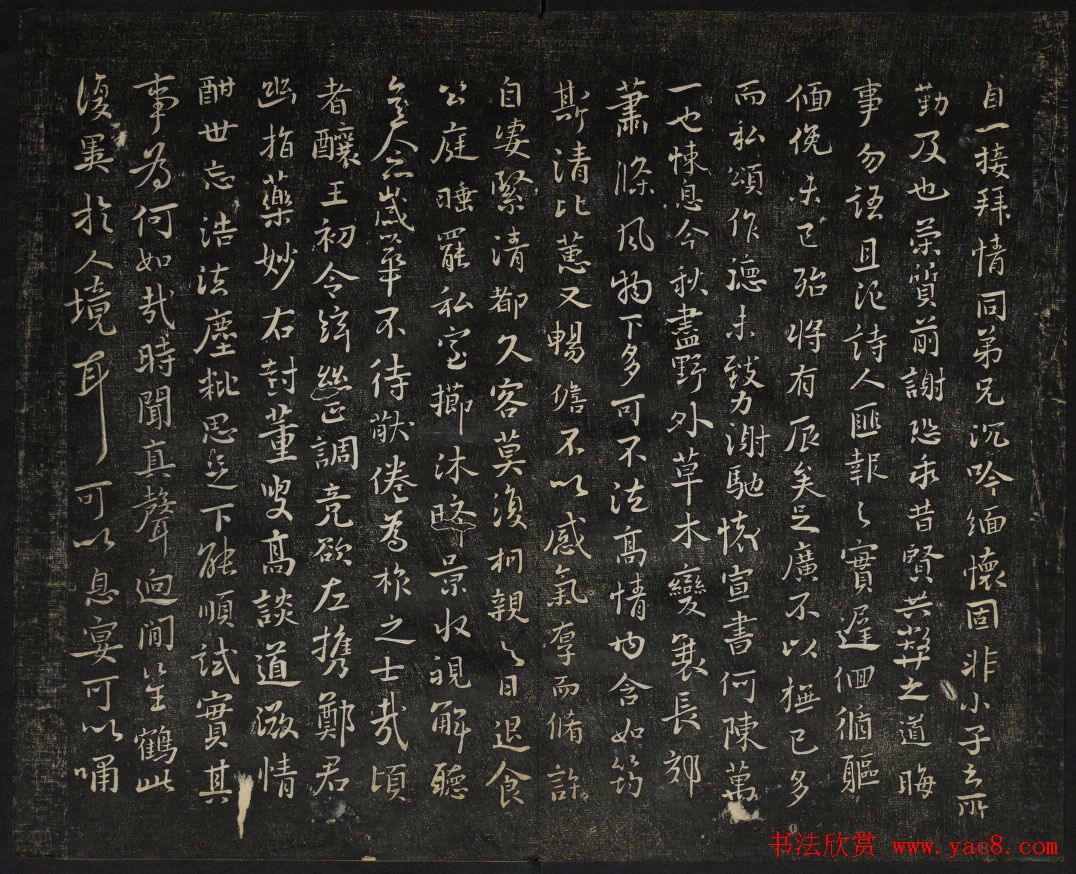 自一接拜情同弟兄沉吟緬懷固非小子之所
勤及也策質前謝恐乖昔賢共弊之道晦
事勿語且泥詩人匪報之實遲徊循軀
俛未已殆將有辰矣足廣不以撫已多
而私頌作德未致力謝馳懷宣書何陳萬
一也悚息今秋盡野外草木變衰長郊
蕭條風物下多可不法高情內含如筠
斯清比蕙又暢僑不以感氣序而脩詐
自婁緊清都久客莫復相親之日退食
公庭睡罷私室擲沐晞景收視解聽
歲華不待猷倦為旅之士哉頃
者釀王初令絲正調竞欲左携鄭君
幽指藥妙右封董叟高談道激情
酣世忘浩法塵粃思迄下能順試實其
事為何如哉時聞真聲迥澗笙鶴此
復異於人境耳可以息宴可以嘯
书法欣赏 www.yac8.com